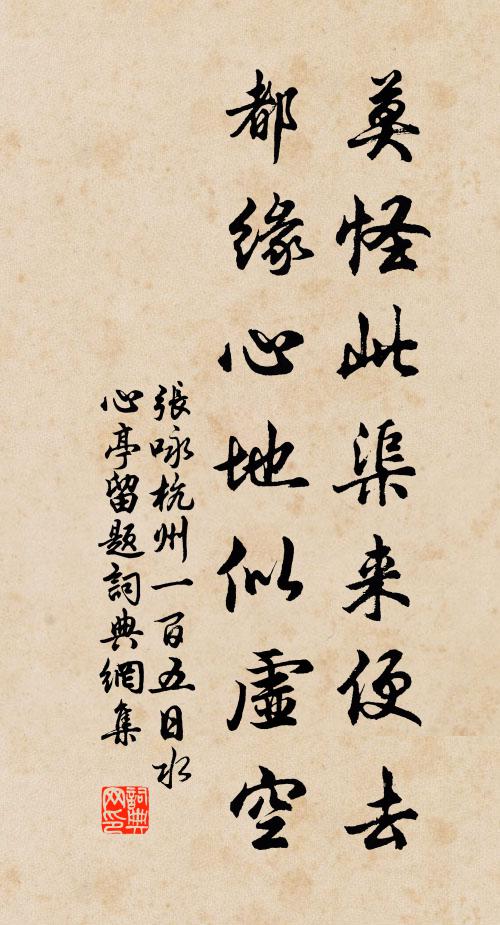 莫怪此渠来便去
都缘心地似虚空
張咏杭州一百五日水
心亭留题詞典網集
詞典网印